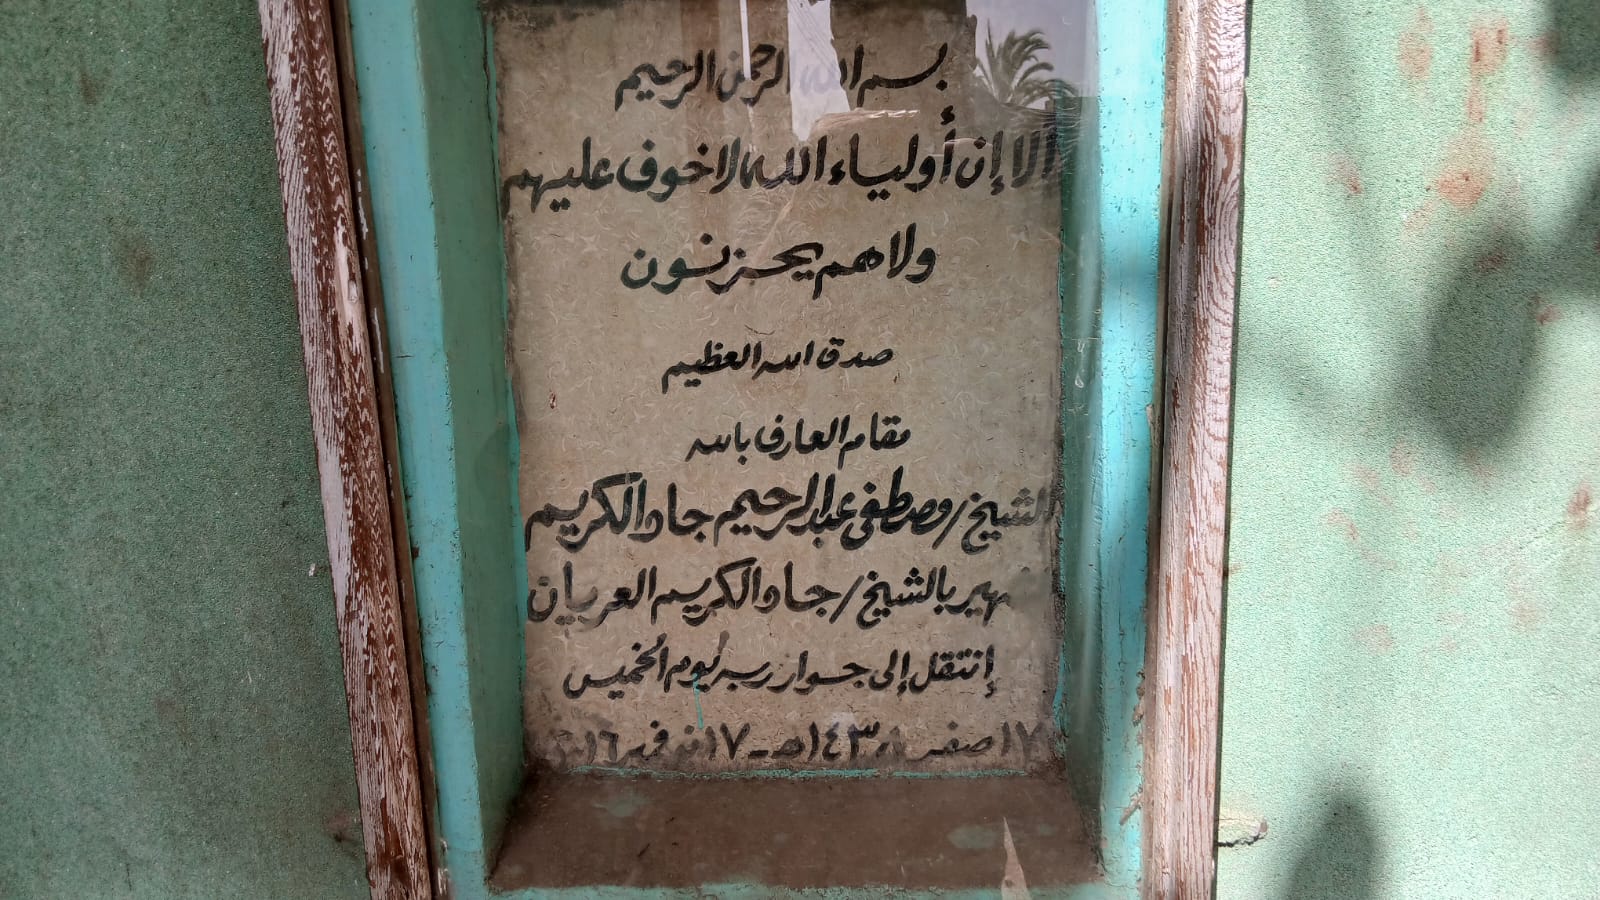 بسم الله الرحمن الرحيم
ألا إن أولياء الله لا خوف عليهم
ولا هم يحزنون
صدق الله العظيم
مقام العارف بالله
الشيخ/مصطفى عبدالرحيم جاد الكريم
بالشيخ/جاد الكريم العريان
إنتقل إلى جوار ربه يوم الخميس
١٧ صفر ١٤٣٨هـ - ١٧ نوفمبر ٢٠١٦